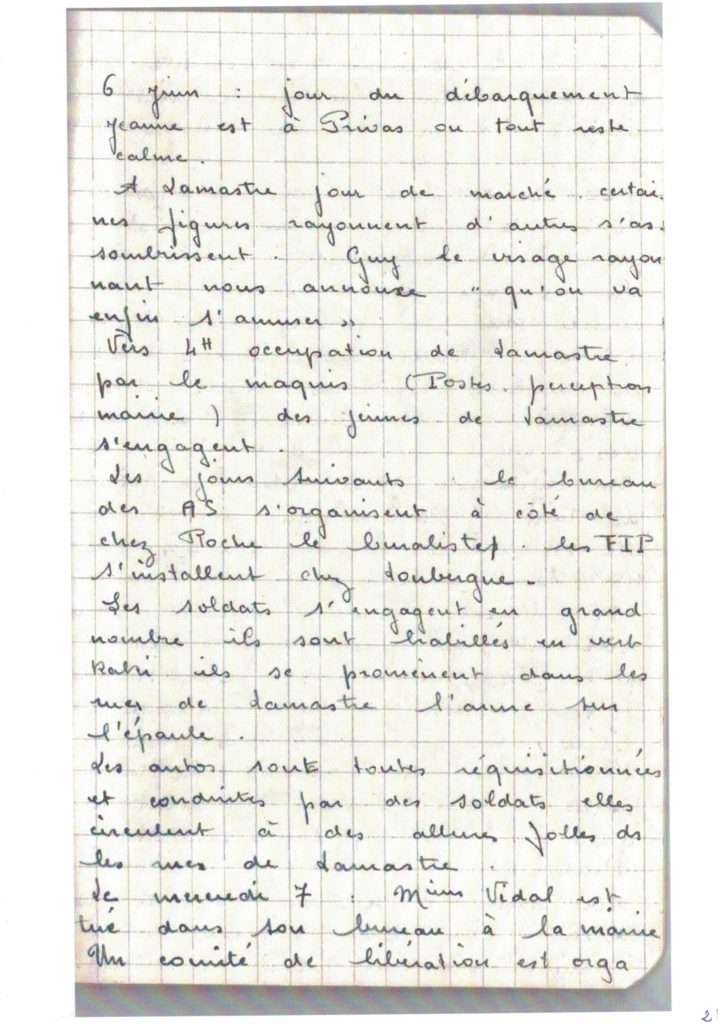 6 juin : jour du débarquement
Jeanne est à Privas ou tout reste
calme.
A Lamastre jour de marché. certai-
nes figures rayonnent d'autres s'as-
sombrissent. Guy le visage rayon
nant nous annonce " qu'on va
enfin s'amuser »
Vers 4H occupation de Lamastre
par le maquis (Postes. perception
mairie) des jeunes de Lamastre
s'engagent.
Les jours suivants. le bureau
des AS s'organisent à côté de
chez Roche le buraliste. les FTP
s'installent chez
Les soldats s'engagent en grand
nombre ils sont habillés en vert
kaki ils se promènent dans les
rues de Lamastre l'arme sur
l'épaule.
Les autos sont toutes réquisitionnées
et conduites par des soldats elles
circulent à des allures folles ds
les rues de Lamastre.
Le mercredi 7 : Vidal est
tué dans son bureau à la mairie
Un comité de libération est orga
2